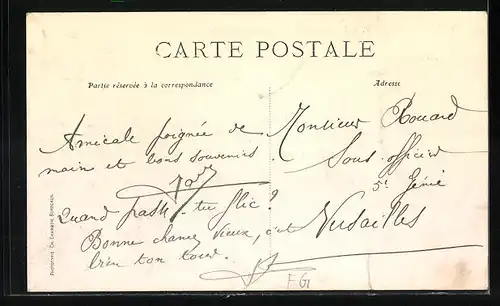 CARTE POSTALE
Partie réservée à la correspondance
Adresse
Amicale poignée de
main et bons souvenirs.
Quand passes-tu flic ?
Bonne chance vieux, c'est
bien ton tour.
Monsieur Rouard
Sous officier
5e Génie
Versailles
FG